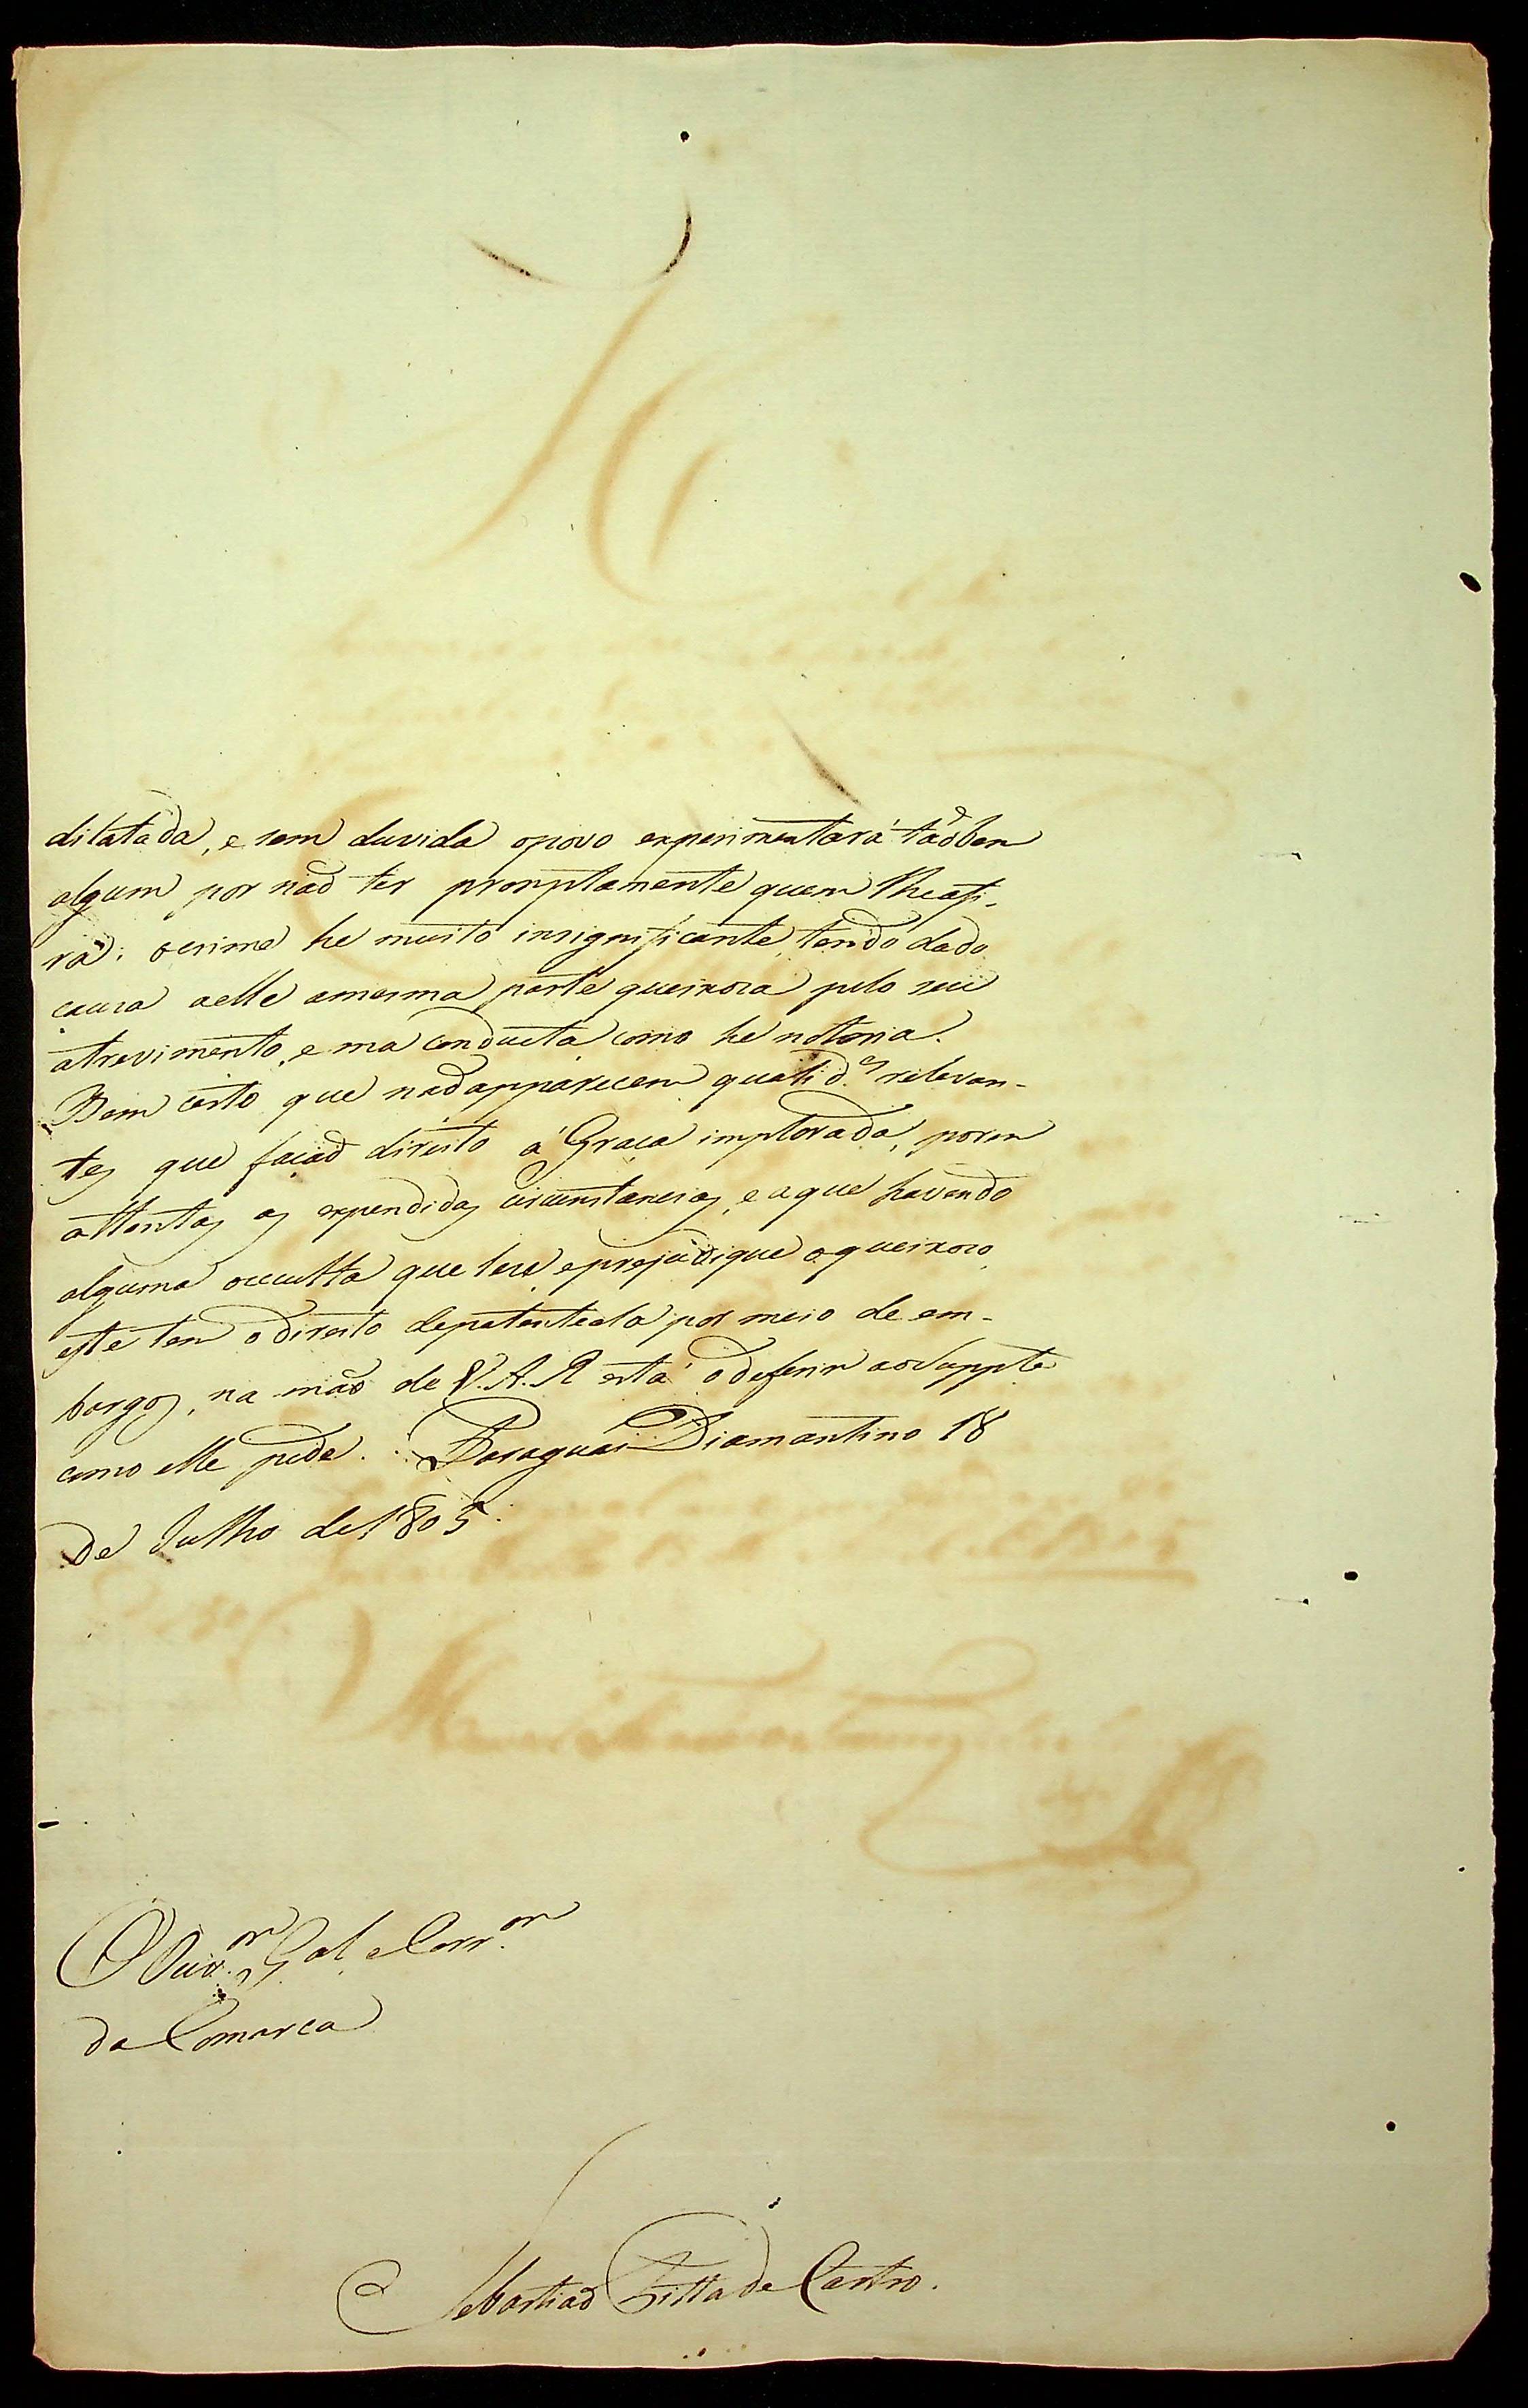 dilatada, e sem duvida opovo experimentará tãobem
algum por naõ ter promptamente quem
ra: ocrime he muito insignificante, tendo dado
cauza aelle amesma parte queixoza pelo seu
atrevimento, e ma conducta como he notoria.
Bem certo que naõ apparecem qualid.es relevan-
tes que façaõ direito á Graça implorada, porem
attentas as expendidas circunstancias, e a que havendo
alguma occulta que leze, eprejudique oqueixozo,
este tem odireito depatentеala por meio de em-
bargos, na maõ de V.A.R está odeferir aoSuppte
como elle pede. Paraguai Diamantino 18
de Julho de 1805.
O Ouv.or Gal e Corr.or
da Comarca
Sebastiaõ Pitta de Castro.